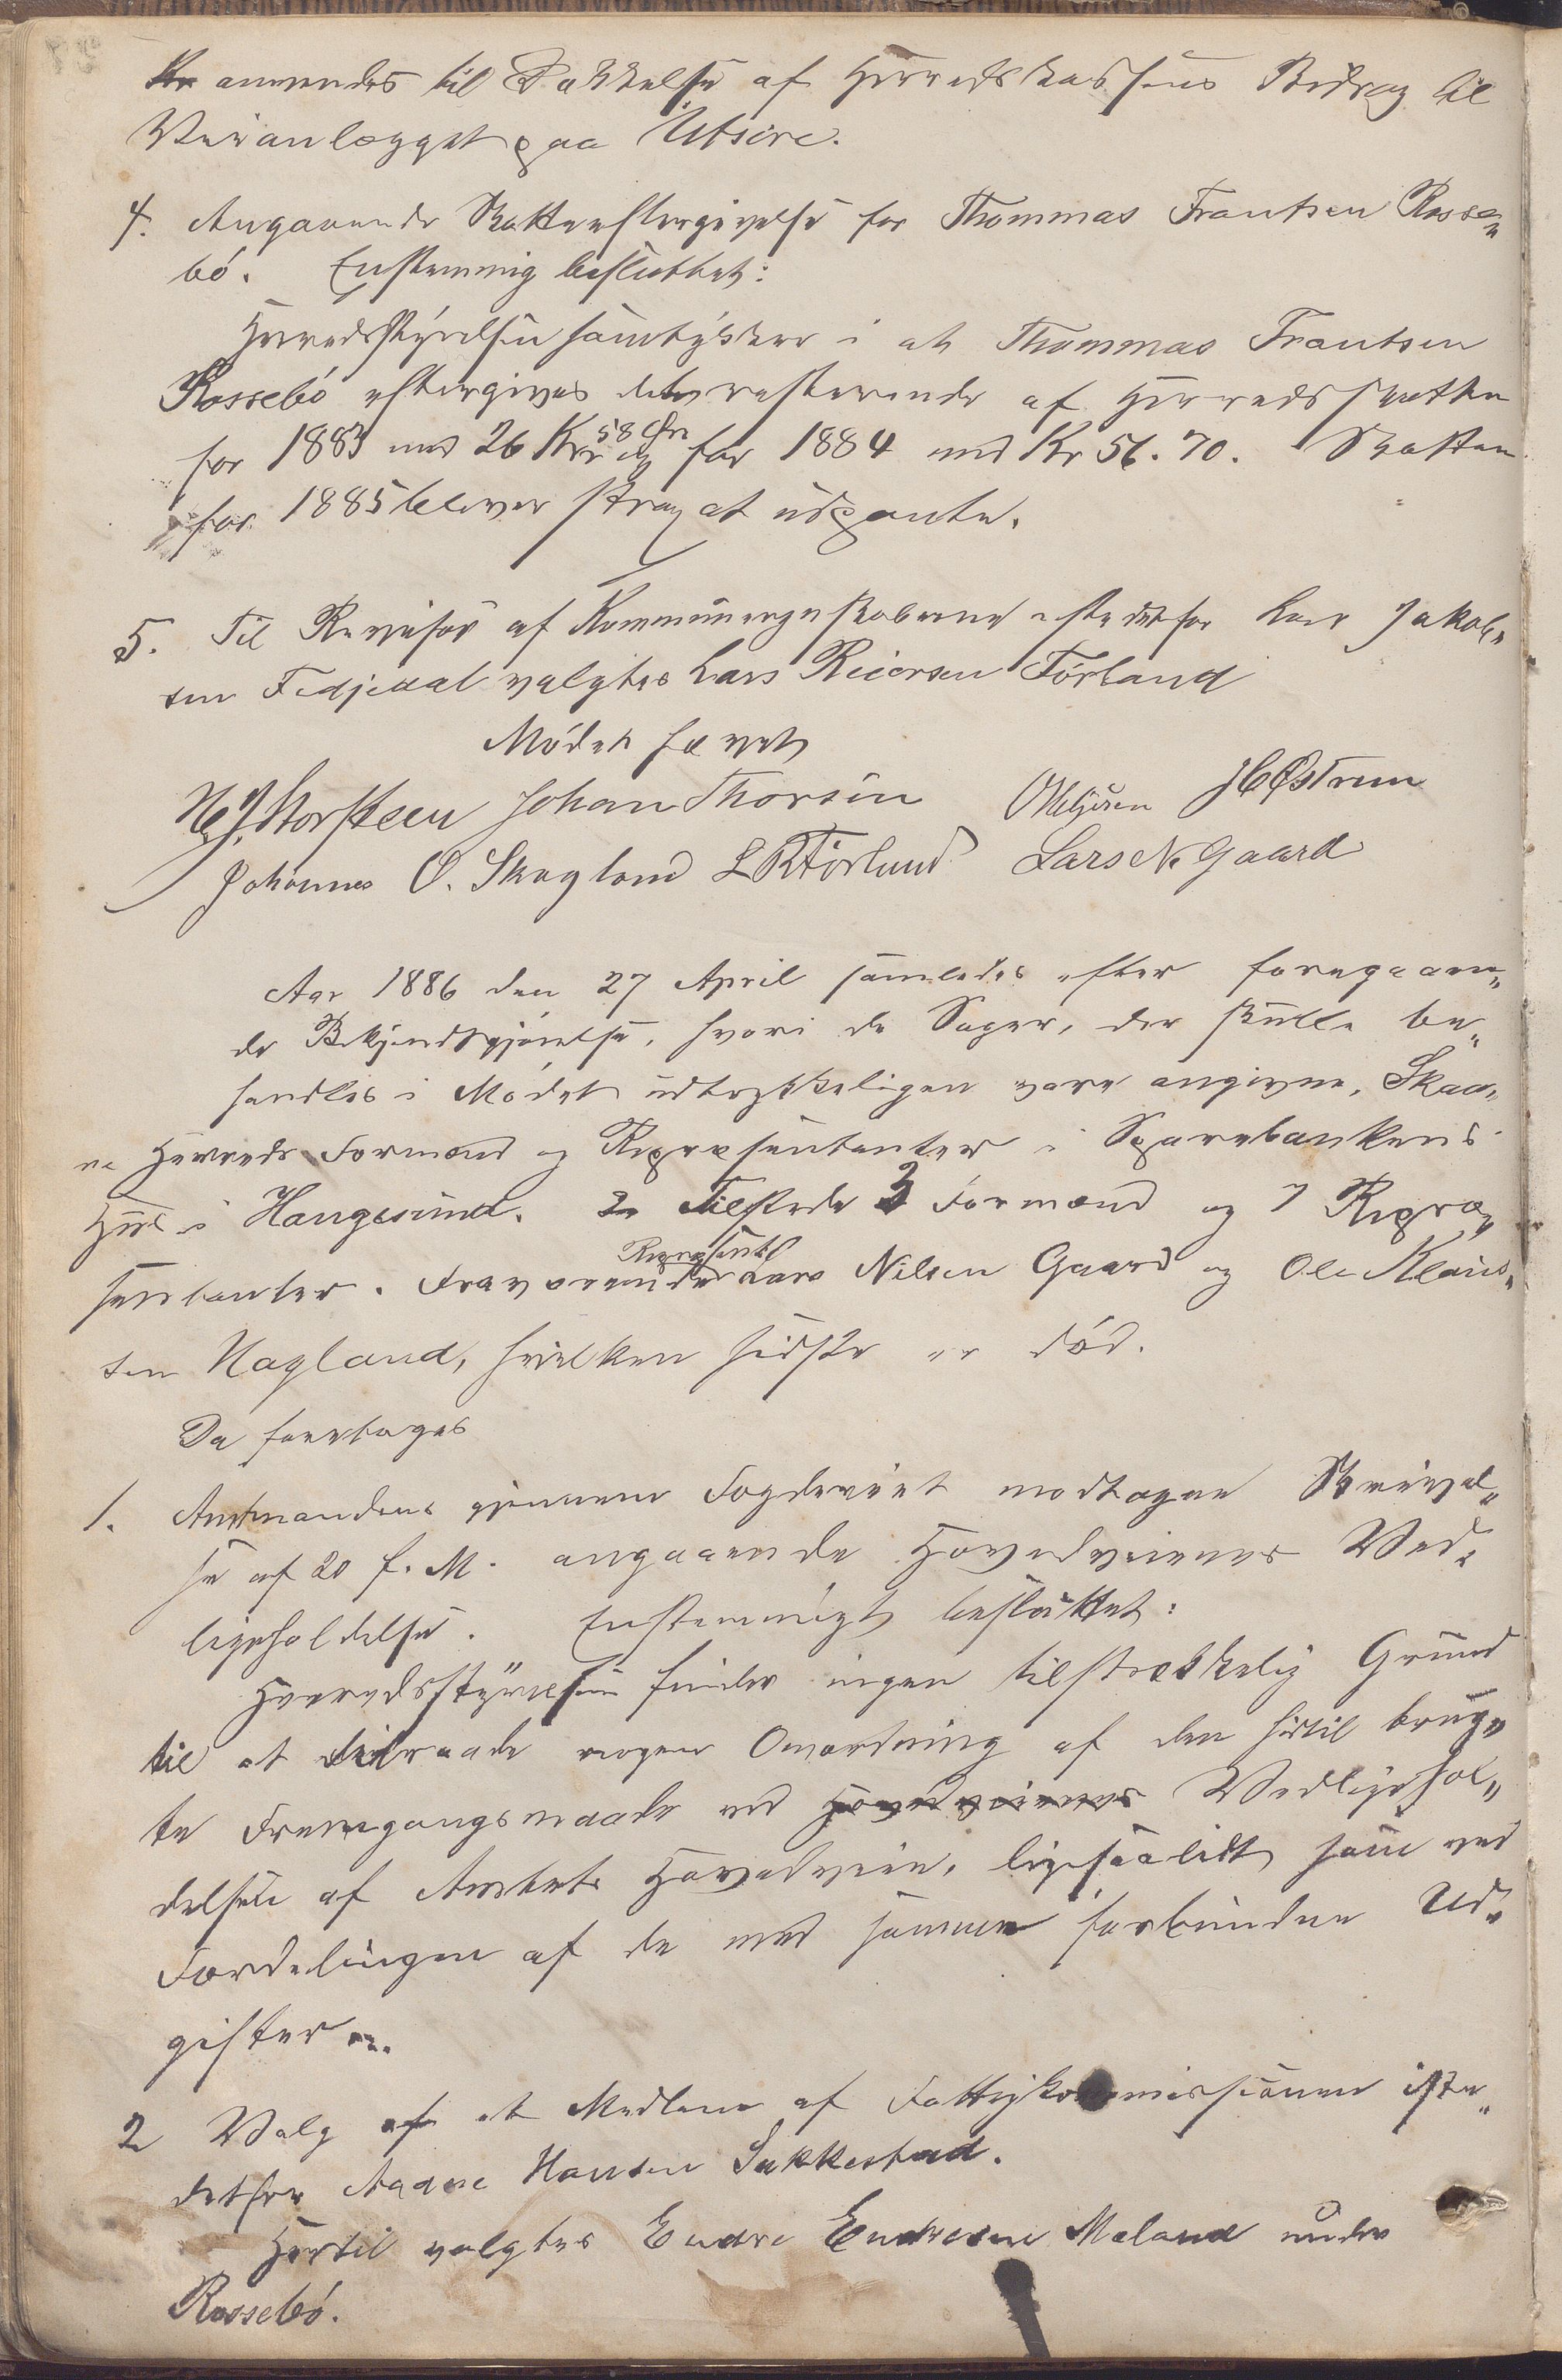 anvendes til Dækkelse af Herredskassens Bidrag til
Veianlægget paa Utsire.
4. Angaaende Skatteeftergivelse for Thommas Frantsen Rosse„
bö. Enstemmig besluttet:
Herredsstyrelsen samtykker i at Thommas Frantsen
Rossebö eftergives det resterende af Herredsskatten
for 1883 med 26 Kr 58 Øre og for 1884 med Kr 56.70. Skatten
for 1885 bliver strax at udpante.
5. Til Revisor af Kommuneregnskaberne istedetfor Lars Jakob„
sen Fedjedal valgtes Lars Reiersen Förland
Mödet hævet
Johan Thorsen
Johannes O. Skagland L R Förland Lars N. Gaard
Aar 1886 den 27 April samledes efter foregaaen„
de Bekjendtgjörelse, hvori de Sager, der skulle be„
handles i Mödet udtrykkeligen vare angivne, Skaa„
re Herreds Formænd og Repræsentanter i Sparebankens
Hus i Haugesund. Tilstede 3 Formænd og 7 Repræ„
sentanter. Fraværende Repræsent. Lars Nilsen Gaard og Ole Klaus„
sen Hagland, hvilken sidste er död.
Da foretoges
1. Amtmandens gjennem Fogderiet modtagne Skrivel„
se af 20 f. M. angaaende Hovedveienes Ved„
ligeholdelse. Enstemmigt besluttet:
Herredsstyrelsen finder ingen tilstrækkelig Grund
til at tilraade nogen Omordning af den hidtil brug„
te Fremgangsmaade ved Hovedveienes Vedligehol„
delsen af Amtets Hovedveie, ligesaalidt som ved
Fordelingen af de med samme forbundne Ud„
gifter.
2 Valg af et Medlem af Fattigkommissionen iste„
detfor Aadne Hansen Sakkestad.
Hertil valgtes Endre Endresen Meland under
Rossebö.